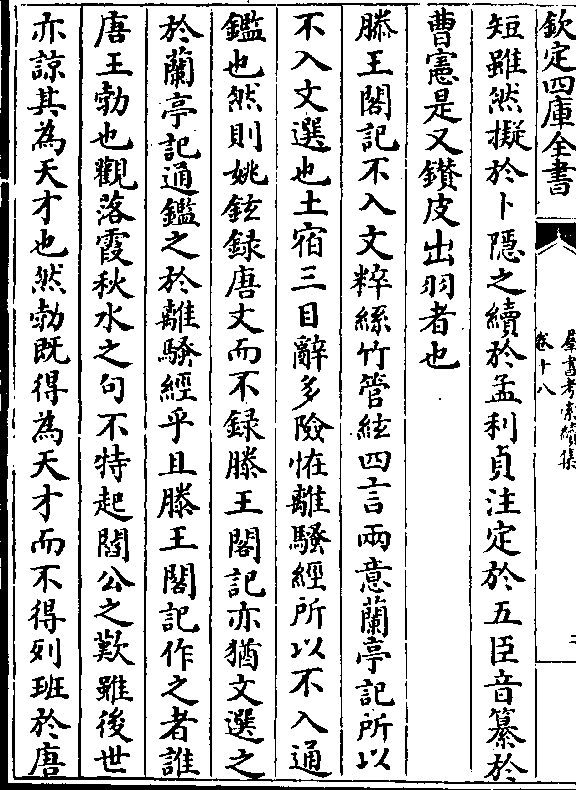 欽定四庫全書
羣書考索續集
卷十八
短雖然擬於卜隱之續於孟利貞注定於五臣音纂於
曹憲是又鑽皮出羽者也
滕王閣記不入文粹絲竹管絃四言兩意蘭亭記所以
不入文選也土宿三目辭多險怪離騷經所以不入通
鑑也然則姚鉉録唐文而不録滕王閣記亦猶文選之
於蘭亭記通鑑之於離騷經乎且滕王閣記作之者誰
唐王勃也觀落霞秋水之句不特起閻公之歎雖後世
亦諒其為天才也然勃既得為天才而不得列班於唐